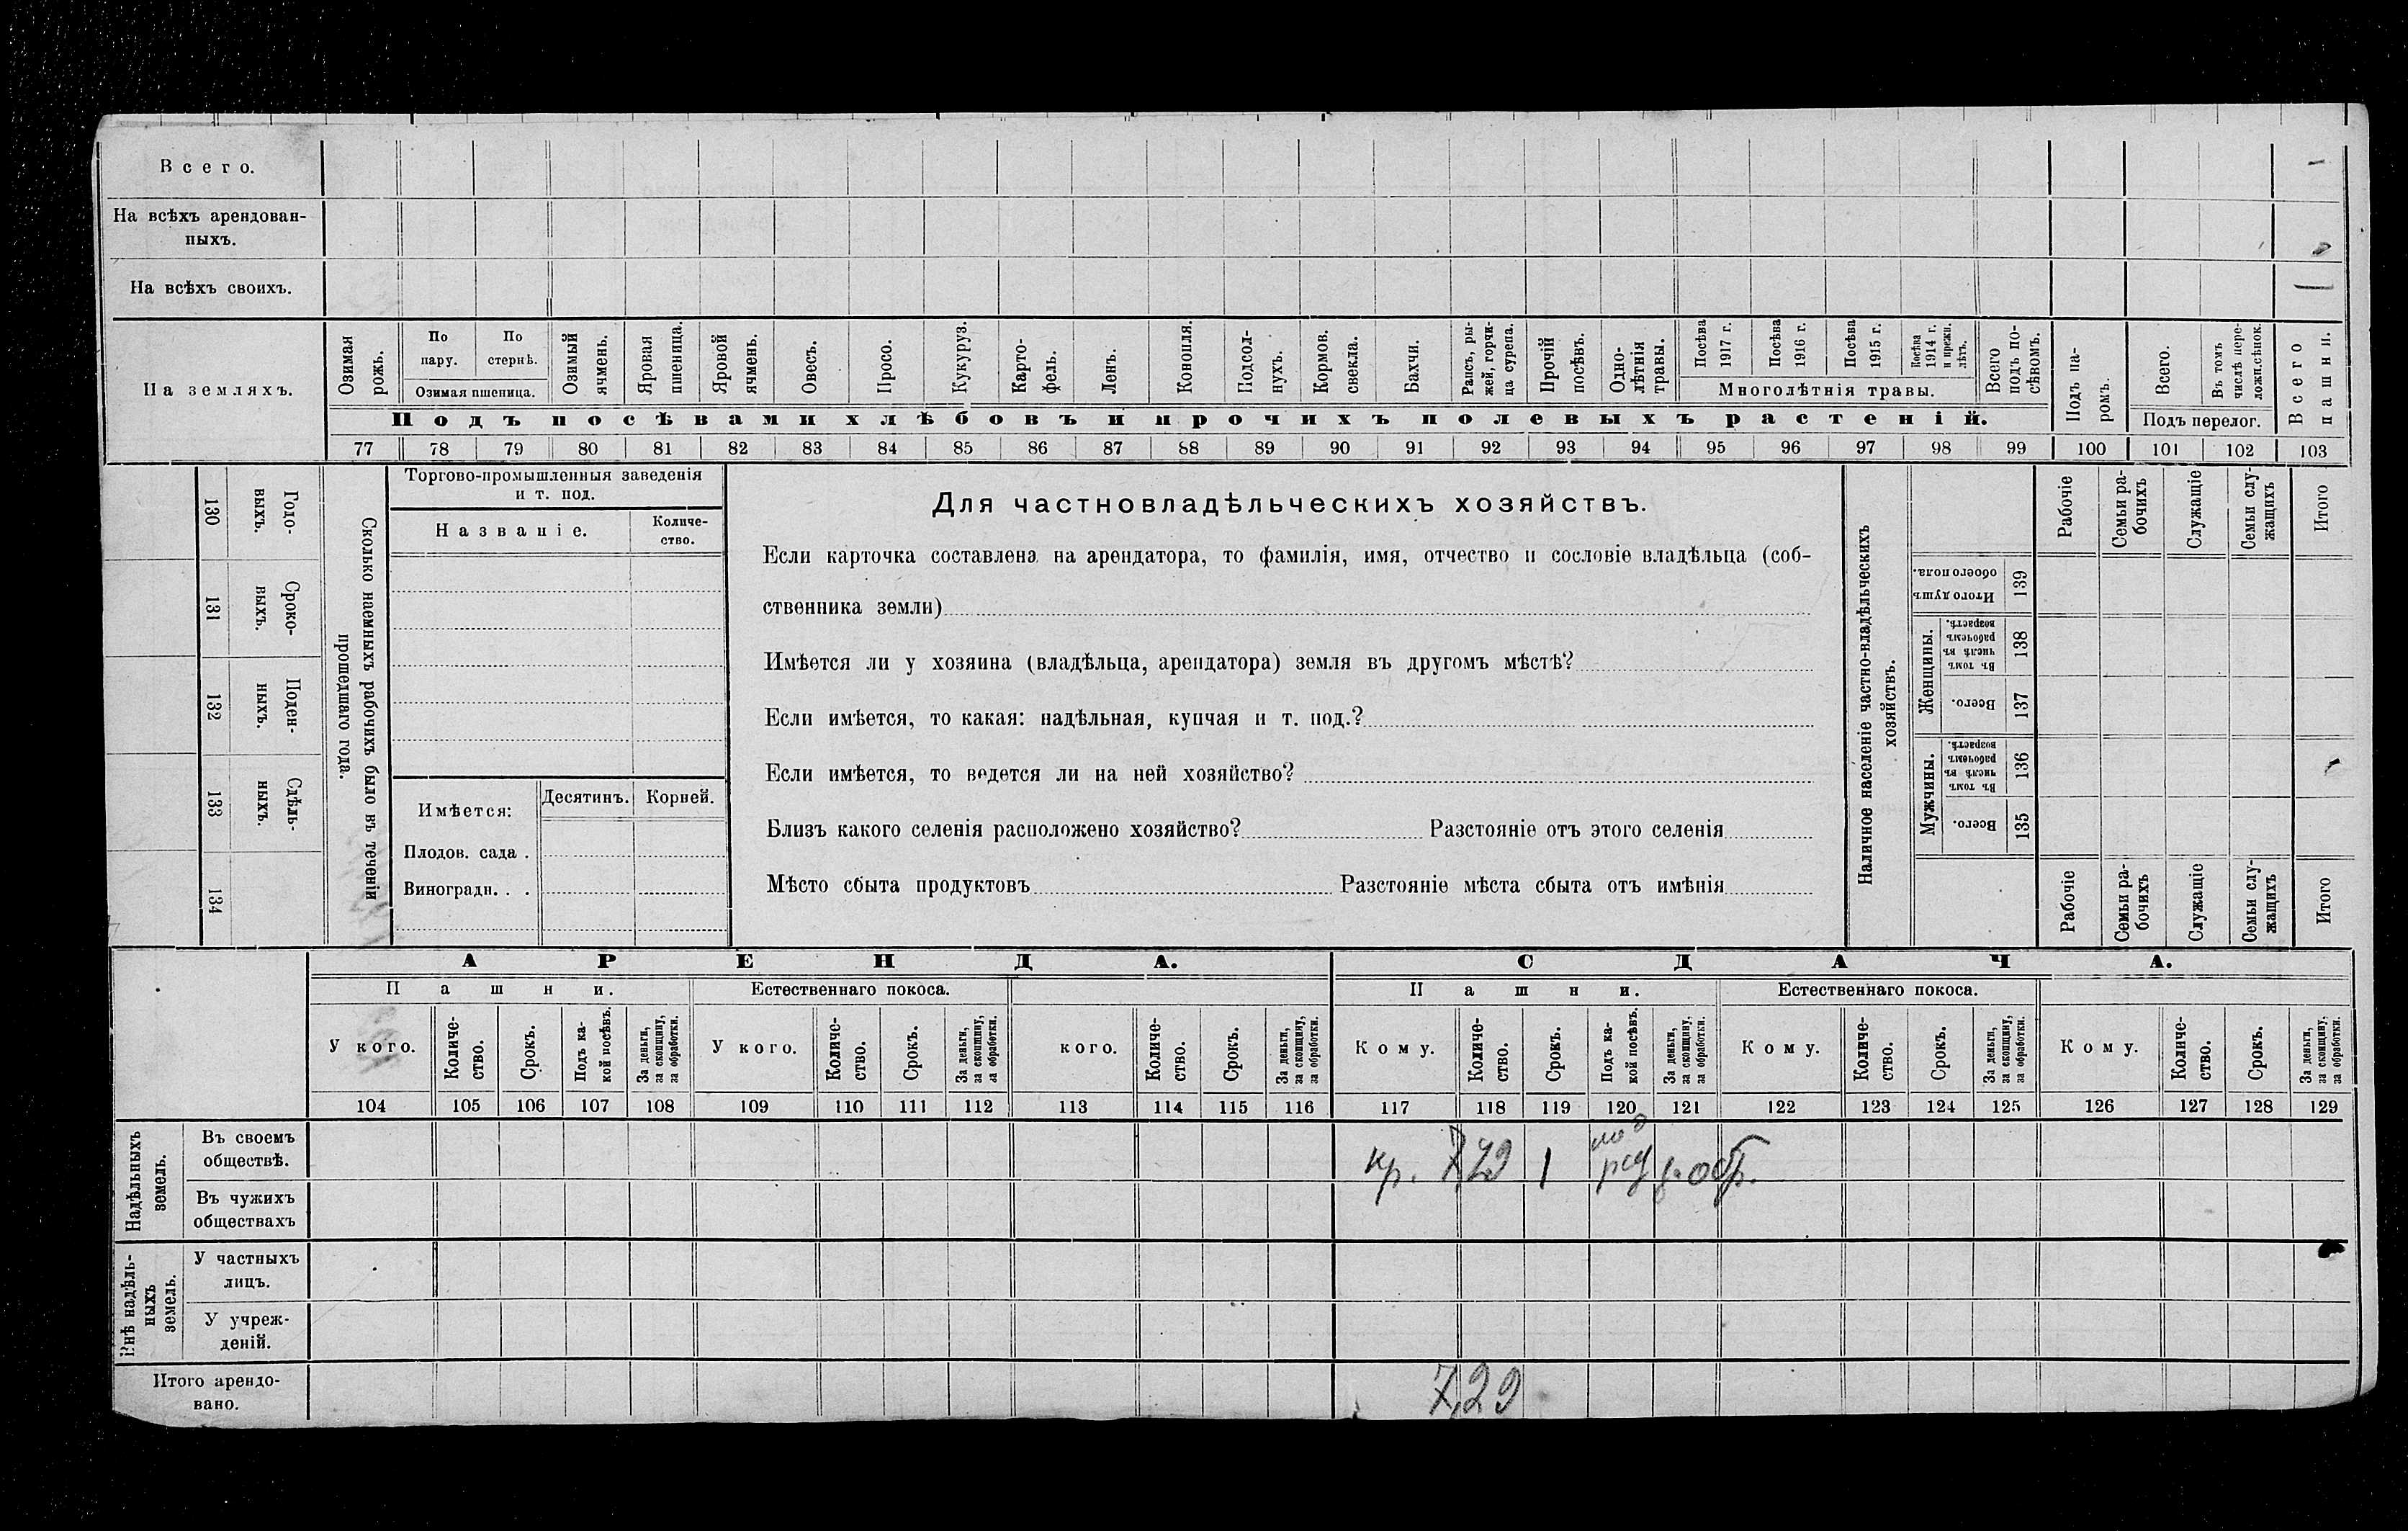 Всего.
На всѣхъ арендован-
ныхъ.
На всѣхъ своихъ.
На земляхъ.
Озимая рожь.
По пару.
По стернѣ.
Озимая пшеница.
Озимый ячмень.
Яровая пшеница.
Яровой ячмень.
Овесъ.
Просо.
Кукуруз.
Карто-
фель.
Ленъ.
Конопля.
Подсол-
нухъ.
Кормов. свекла.
Бахчи.
Рапсъ, ры-
жей, горчи-
ца сурепа.
Прочій посѣвъ.
Одно-
лѣтнія травы.
Посѣва 1917 г.
Посѣва 1916 г.
Посѣва 1915 г.
Посѣва 1914 г. и прежн. лѣтъ.
Многолѣтнія травы.
Всего подъ по-
сѣвомъ.
Подъ па-
ромъ.
Всего.
Въ томъ числѣ пере-
ложн.сѣнок.
Подъ перелог.
Всего пашни.
Подъ посѣвами хлѣбовъ и прочихъ полевыхъ растеній.
77 78 79 80 81 82 83 84 85 86 87 88 89 90 91 92 93 94 95 96 97 98 99 100 101 102 103
130 Годо-
выхъ.
131 Сроко-
выхъ.
132 Поден-
ныхъ.
133 Сдѣль-
ныхъ.
134
Сколько наемныхъ рабочихъ было въ теченіи
прошедшаго года.
Торгово-промышленныя заведенія
и т. под.
Названіе.
Количе-
ство.
Имѣется:
Десятинъ.
Корней.
Плодов. сада .
Виноградн. . .
Для частновладѣльческихъ хозяйствъ.
Если карточка составлена на арендатора, то фамилія, имя, отчество и сословіе владѣльца (соб-
ственника земли)
Имѣется ли у хозяина (владѣльца, арендатора) земля въ другомъ мѣстѣ?
Если имѣется, то какая: надѣльная, купчая и т. под.?
Если имѣется, то ведется ли на ней хозяйство?
Близъ какого селенія расположено хозяйство? Разстояніе отъ этого селенія
Мѣсто сбыта продуктовъ Разстояніе мѣста сбыта отъ имѣнія
Наличное населеніе частно-владѣльческихъ
хозяйствъ.
Рабочіе
Семьи ра-
бочихъ
Служащіе
Семьи слу-
жащихъ
Итого
Итого душъ обоего пола. 139
Женщины.
Въ томъ числѣ въ рабочемъ возрастѣ. 138
Всего. 137
Мужчины.
Въ томъ числѣ въ рабочемъ возрастѣ. 136
Всего. 135
Рабочіе
Семьи ра-
бочихъ
Служащіе
Семьи слу-
жащихъ
Итого
АРЕНДА.
СДАЧА.
Пашни.
Естественнаго покоса.
Пашни.
Естественнаго покоса.
У кого.
Количе-
ство.
Срокъ.
Подъ ка-
кой посѣвъ.
За деньги,
за скопщину,
за обработки.
У кого.
Количе-
ство.
Срокъ.
За деньги,
за скопщину,
за обработки.
кого.
Количе-
ство.
Срокъ.
За деньги,
за скопщину,
за обработки.
Кому.
Количе-
ство.
Срокъ.
Подъ ка-
кой посѣвъ.
За деньги,
за скопщину,
за обработки.
Кому.
Количе-
ство.
Срокъ.
За деньги,
за скопщину,
за обработки.
Кому.
Количе-
ство.
Срокъ.
За деньги,
за скопщину,
за обработки.
104 105 106 107 108 109 110 111 112 113 114 115 116 117 118 119 120 121 122 123 124 125 126 127 128 129
Надѣльныхъ
земель.
Въ своемъ
обществѣ.
кр. 7,29 1 обр.
Въ чужихъ
обществахъ
Внѣ надѣль-
ныхъ
земель.
У частныхъ
лицъ.
У учреж-
деній.
Итого арендо-
вано.
7,29